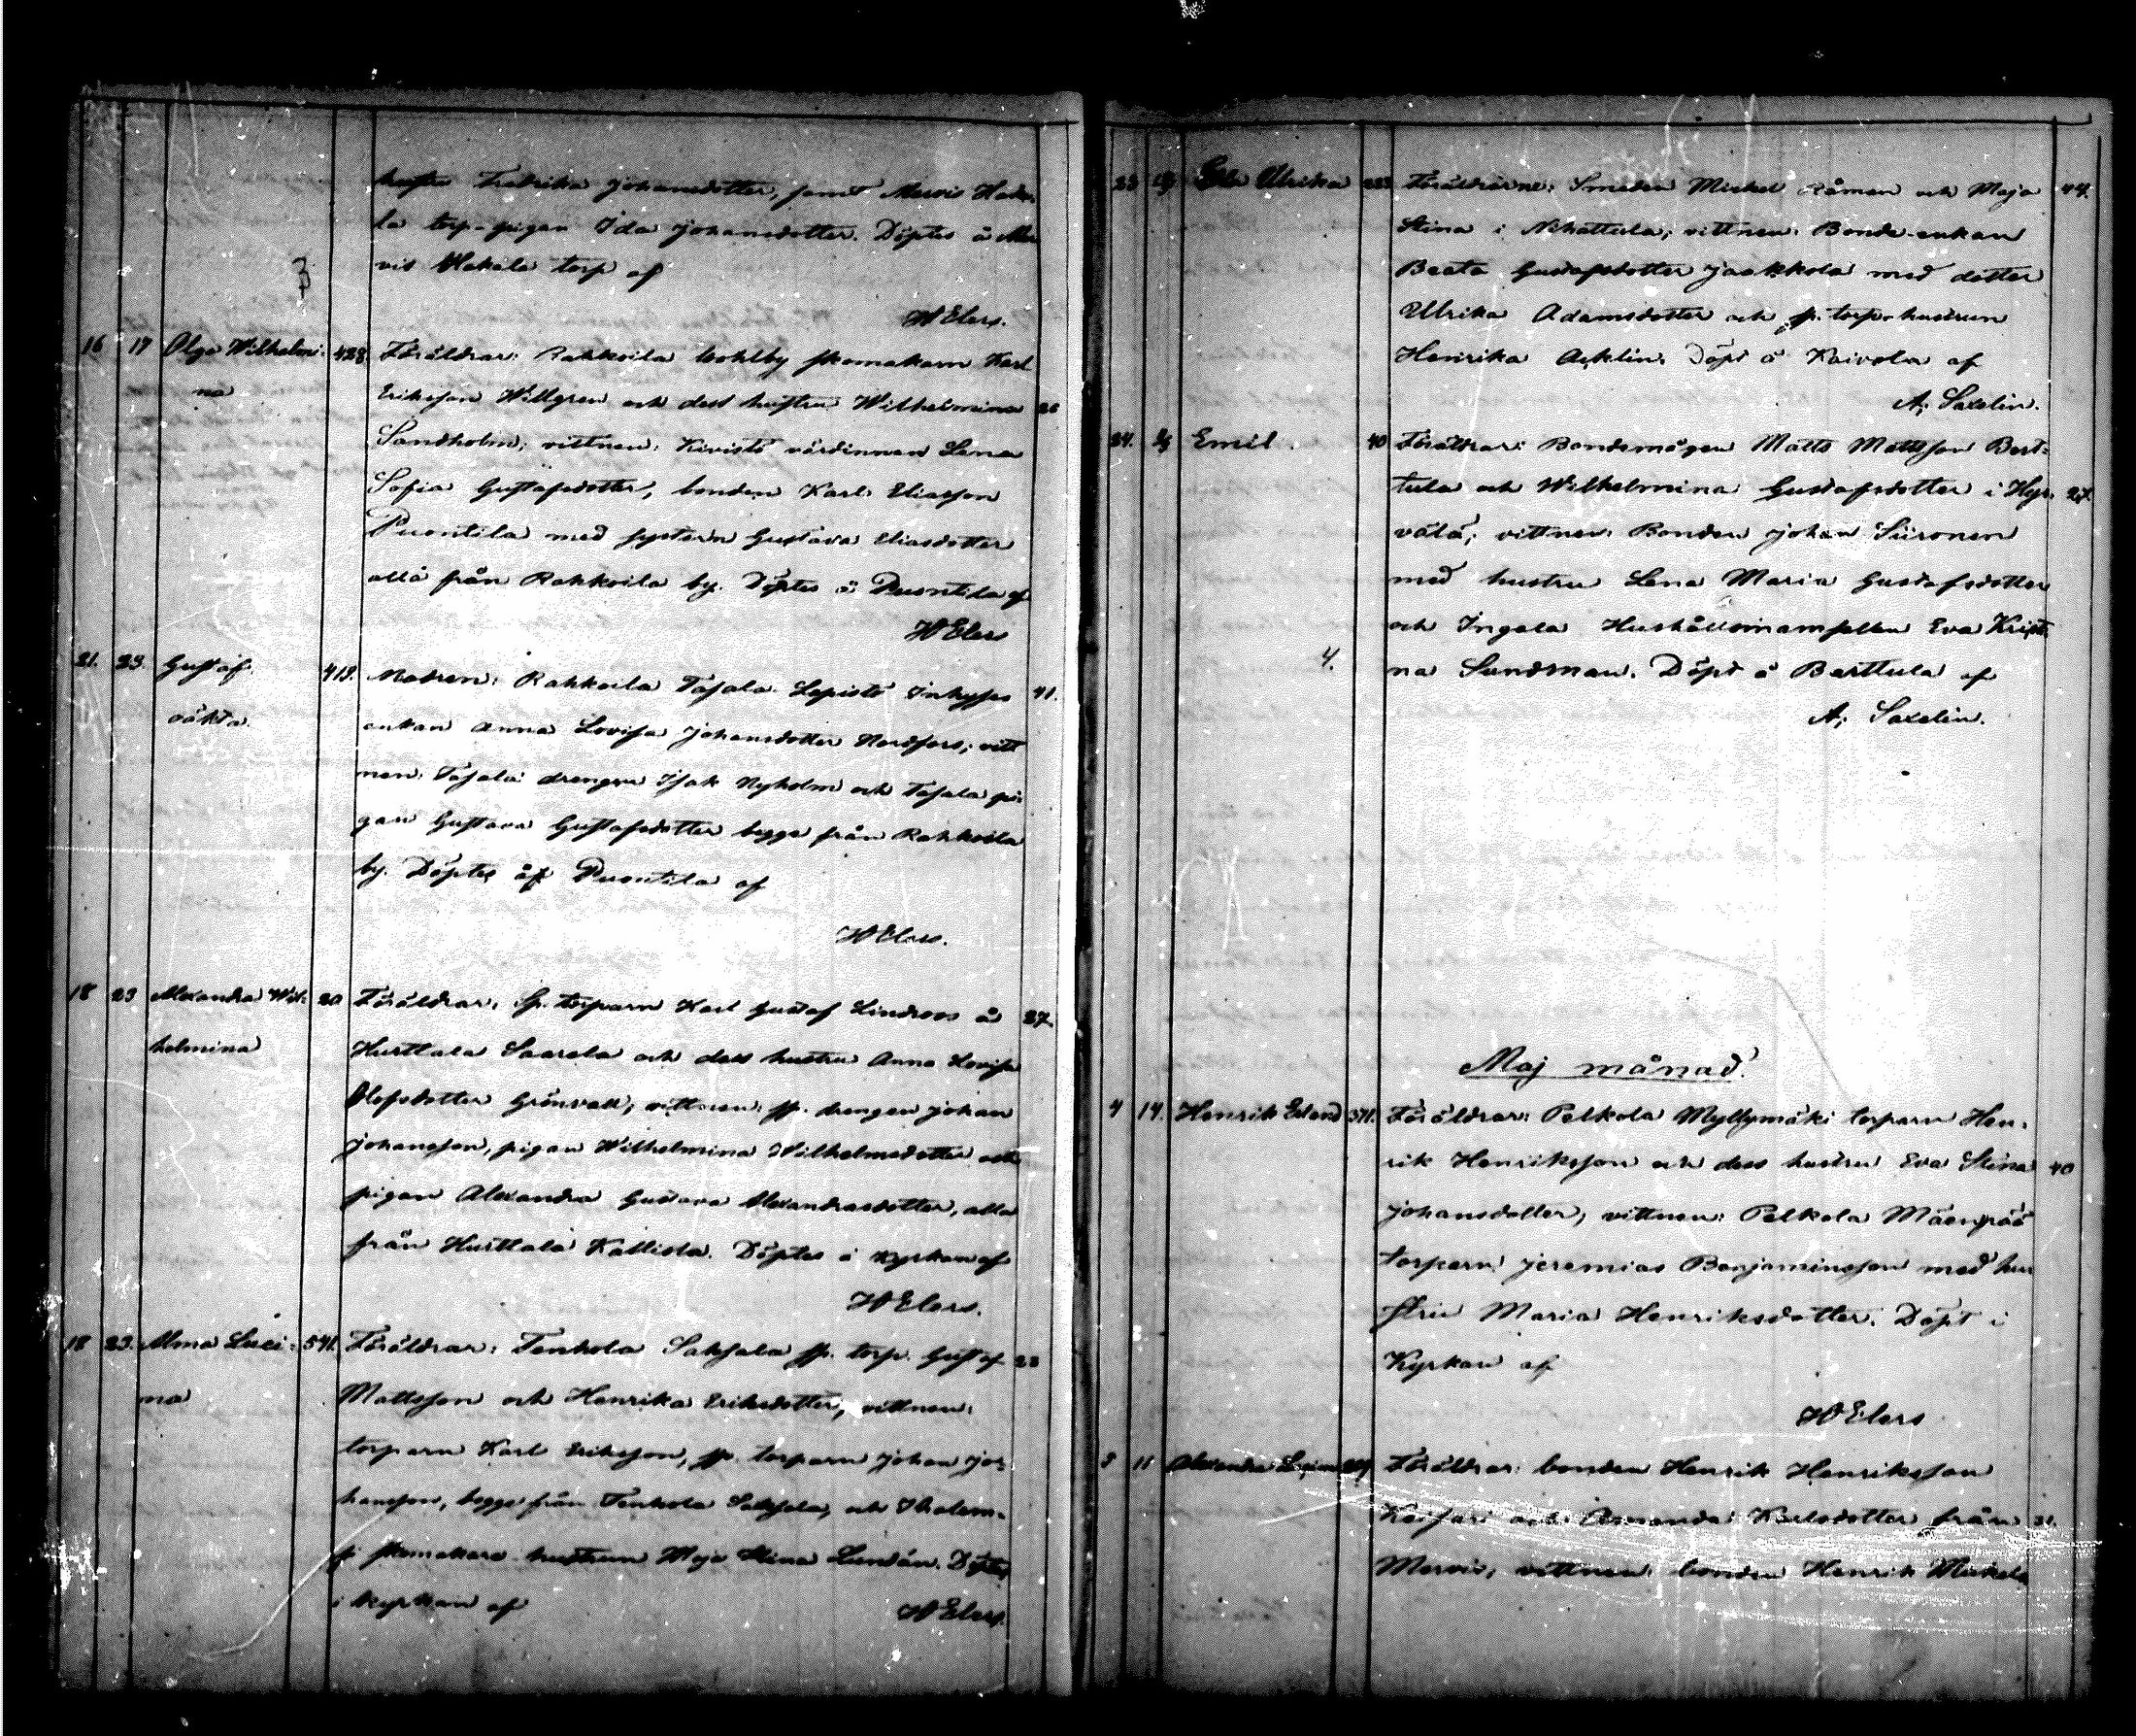 hustru Fredrika Johansdotter, samt Mervis
la torp-pigan Ida Johansdotter. Döptes å Mer
vis Hakala torp af
W Elers.
16 17 Olga Wilhelmi- 428. Föräldrar: Rahkoila bohlby skomakarn Karl
na Eriksson Willgren och dess hustru Wilhelmina 26
Sandholm; vittnen: Kivistö värdinnan Lena
Sofia Gustafsdotter, bonden Karl Eliasson
Puontila med systern Gustava Eliasdotter
alla från Rahkoila by. Döptes å Puontila af
W Elers
21. 23. Gustaf. 413. Modren: Rahkoila Tasala Lepistö Inhyses 41.
oäkta. enkan Anna Lovisa Johansdotter Nordfors; vitt
nen: Tasala drengen Isak Nyholm och Tasala pi-
gan Gustava Gustafsdotter begge från Rahkoila
by. Döptes å Puontila af
W Elers.
18 23 Alexandra Wil- 20 Föräldrar: Sp. torparn Karl Gustaf Lindroos å 27.
helmina Hurttala Saarela och dess hustru Anna Lovisa
Olofsdotter Grönvall; vittnen: sp. drengen Johan
Johansson, pigan Wilhelmina Wilhelmsdotter och
pigan Alexandra Gustava Alexandrasdotter, alla
från Hurttala Kallista. Döptes i kyrkan af
W Elers.
18 23. Alma Lusi- 541. Föräldrar: Tenhola Saksala sp. torp. Gustaf 23
na Mattsson och Henrika Eriksdotter, vittnen:
torparn Karl Eriksson, sp. torparn Johan Jo-
hansson, begge från Tenhola Saksala, och
skomakare-hustrun Maja Stina Lundán. Döptes
i kyrkan af W Elers.
23 Ulrika 223. Föräldrarne: Smeden Mickel Råman och Maja 44.
Stina i Nihattula; vittnen: Bonde-enkan
Beata Gustafsdotter Jaakkola med dotter
Ulrika Adamsdotter och sp. torp-hustrun
Henrika Acklin. Döpt å Kaivola af
A; Saxelin.
24. Emil. 40 Föräldrar: Bondemågen Matts Mattsson Bert-
tula och Wilhelmina Gustafsdotter i Hyr- 27.
välä; vittnen: Bonden Johan Siironen
med hustru Lena Maria Gustafsdotter
och Ingala Hushållsmamsellen Eva Kristi-
4. na Sandman. Döpt å Berttula af
A; Saxelin.
Maj månad.
4 14. Henrik Erland 371. Föräldrar: Pelkola Myllymäki torparn Hen-
rik Henriksson och dess hustru Eva Stina 40
Johansdotter; vittnen: Pelkola Mäenpää
torparn Jeremias Benjaminsson med hu
stru Maria Henriksdotter. Döpt i
Kyrkan af
W Elers
11 Alexandra Föräldrar: bonden Henrik Henriksson
och Amanda Karlsdotter från 21.
Mervis; vittnen: bonden Henrik Mickels